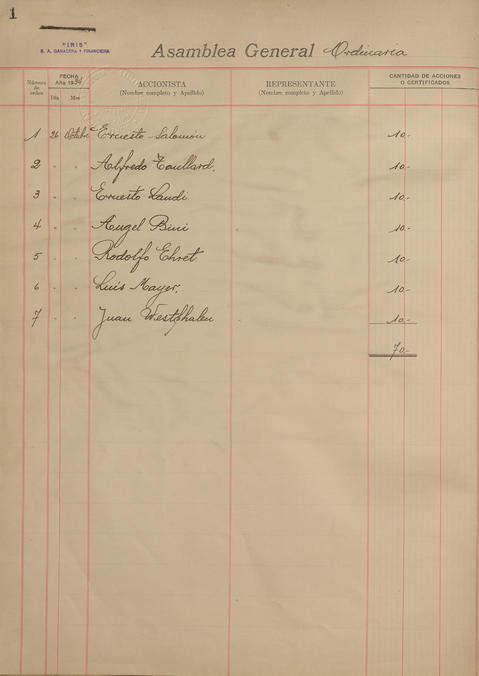 1
"IRIS"
S. A. GANADERA Y FINANCIERA
Asamblea General Ordinaria
Número de orden
FECHA
Año 1934
Día Mes
ACCIONISTA
(Nombre completo y Apellido)
REPRESENTANTE
(Nombre completo y Apellido)
CANTIDAD DE ACCIONES
O CERTIFICADOS
1 26 Octubre Ernesto Salomón 10.-
2 " " Alfredo Taullard. 10.-
3 " " Ernesto Landi. 10.-
4 " " Angel Bini 10.-
5 " " Rodolfo Ehret 10.-
6 " " Luis Mayer. 10.-
7 " " Juan Westphalen 10.-
70.-